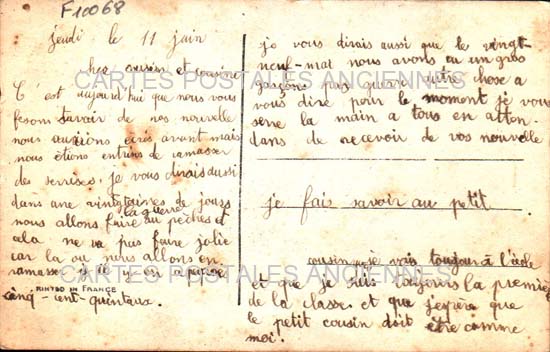 F10068
jeudi le 11 juin
cher cousin et cousine
C'est aujourd'hui que nous vous
fesons savoir de nos nouvelle
nous aurions écris avant mais
nous étions entrins de ramasser
des serrises, je vous dirais aussi
dans une vingtaines de jours
nous allons faire la guerre au pêches et
cela ne va pas faire jolie
car la ou nous allons en
ramasser il le en a
cinq-cent-quintaux.
PRINTED IN FRANCE
je vous dirais aussi que le vingt-
neuf-mai nous avons eu un gros
garçons pas autre chose a
vous dire pour le moment je vous
serre la main a tous en atten-
dans de recevoir de vos nouvelle
je fais savoir au petit
cousin que je vais toujours a l'école
et que je suis toujours la première
de la classe et que j'espère que
le petit cousin doit être comme
moi.
CARTES POSTALES ANCIENNES
CARTES POSTALES ANCIENNES